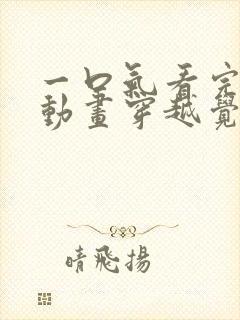 一口氣看完
動畫穿越覺
晴飛揚